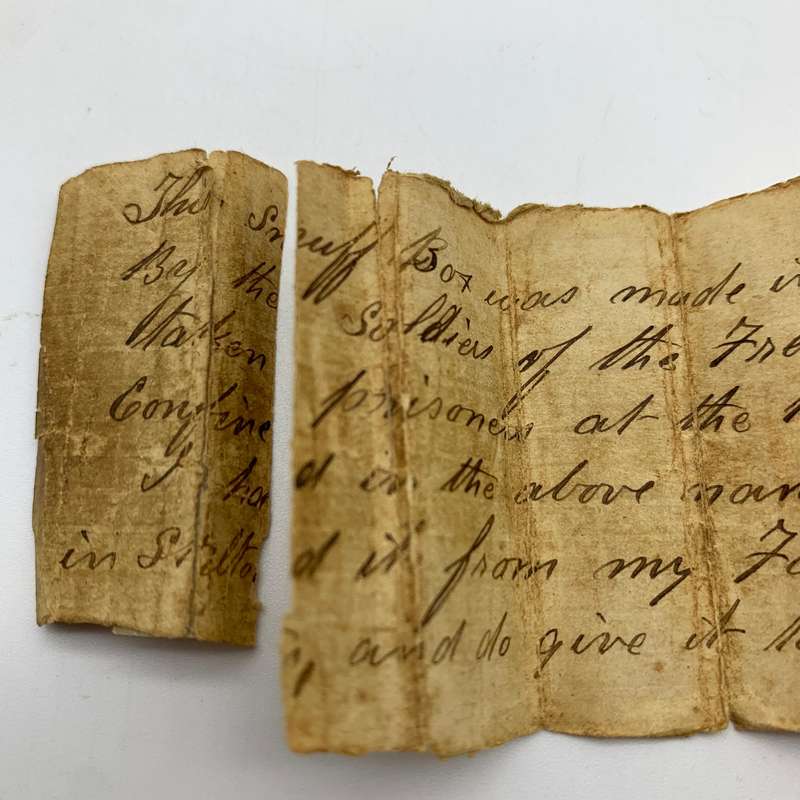 This Snuff Box was made i
By the Soldiers of the Fre
taken prisoners at the
Confined in the above nam
I had it from my Fa
in Stilton, and do give it t